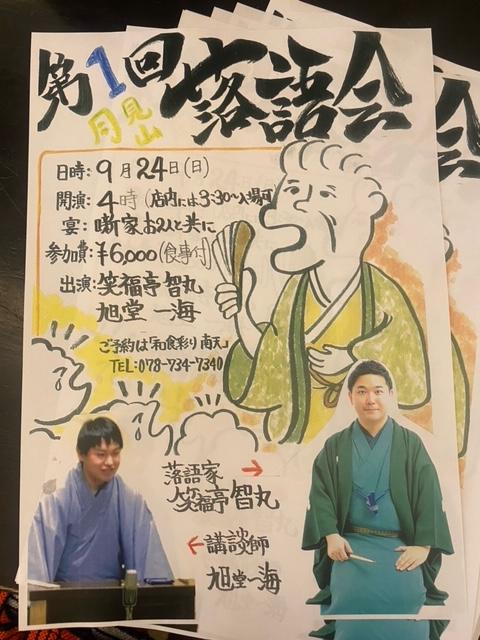 第1回 落語会
月見山
日時:9月24日(日)
開演:4時(店内には3:30〜入場可)
宴:噺家お2人と共に
参加費:¥6,000(食事付)
出演:笑福亭 智丸
旭堂 一海
ご予約は「和食彩り 南天」
TEL:078-734-7340
落語家 →
笑福亭 智丸
←講談師
旭堂 一海